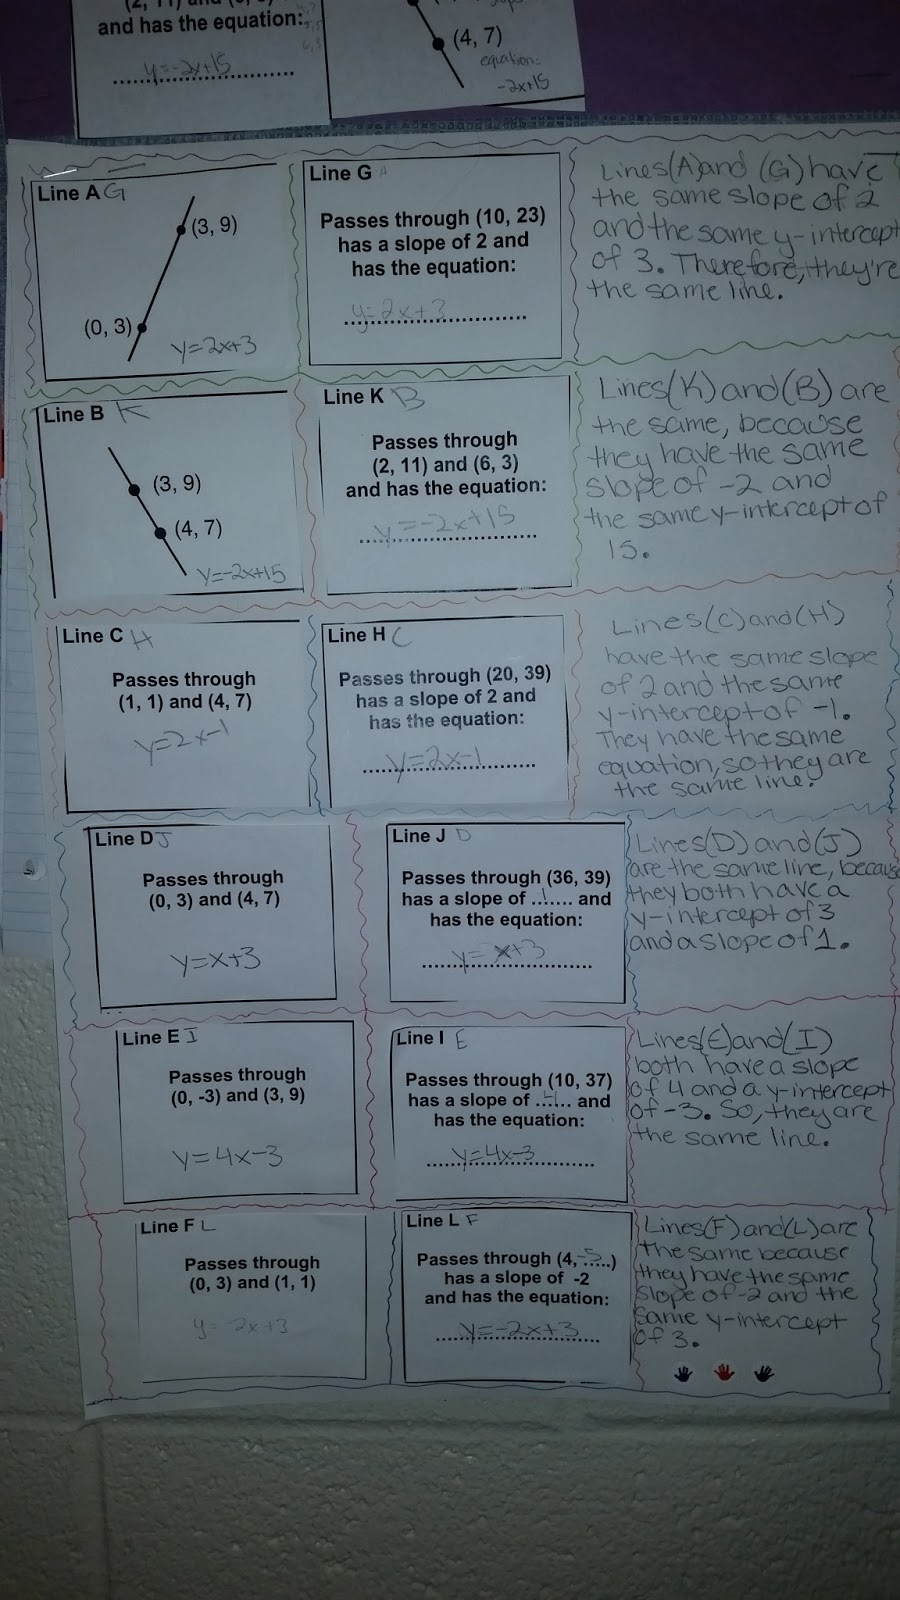 and has the equation:
y=-2x+15
(4, 7)
equation:
-2x+15
Line A G
(3, 9)
(0, 3)
y=2x+3
Line G A
Passes through (10, 23)
has a slope of 2 and
has the equation:
y=2x+3
Lines(A)and (G)have
the same slope of 2
and the same y-intercept
of 3. Therefore, they're
the same line.
Line B K
(3, 9)
(4, 7)
y=-2x+15
Line K B
Passes through
(2, 11) and (6, 3)
and has the equation:
y=-2x+15
Lines(K)and(B) are
the same, because
they have the same
slope of -2 and
the same y-intercept of
15.
Line C H
Passes through
(1, 1) and (4, 7)
y=2x-1
Line H C
Passes through (20, 39)
has a slope of 2 and
has the equation:
y=2x-1
Lines(C)and(H)
have the same slope
of 2 and the same
y-intercept of -1.
They have the same
equation, so they are
the same line.
Line D J
Passes through
(0, 3) and (4, 7)
y=x+3
Line J D
Passes through (36, 39)
has a slope of ..1..... and
has the equation:
y=x+3
Lines(D)and(J)
are the same line, because
they both have a
y-intercept of 3
and a slope of 1.
Line E I
Passes through
(0, -3) and (3, 9)
y=4x-3
Line I E
Passes through (10, 37)
has a slope of ..4.... and
has the equation:
y=4x-3
Lines(E)and(I)
both have a slope
of 4 and a y-intercept
of -3. So, they are
the same line.
Line F L
Passes through
(0, 3) and (1, 1)
y=-2x+3
Line L F
Passes through (4, -5)
has a slope of -2
and has the equation:
y=-2x+3
Lines(F)and(L)are
the same because
they have the same
slope of -2 and the
same y-intercept
of 3.